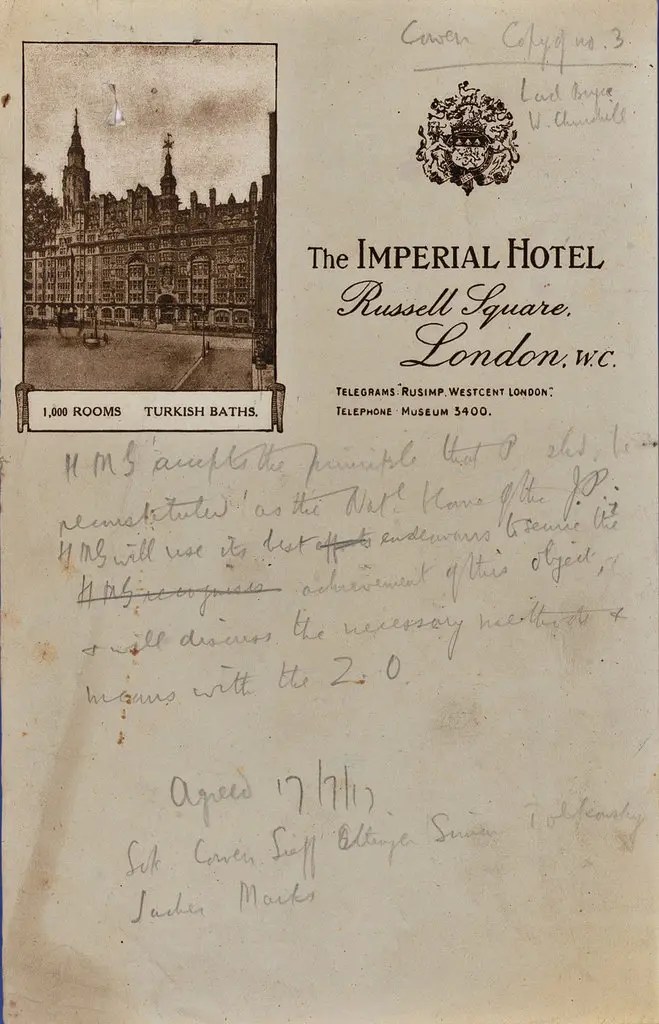 Cowen Copy of no. 3.
Lord Bryce
W. Churchill
The IMPERIAL HOTEL
Russell Square,
London, W.C.
TELEGRAMS "RUSIMP, WESTCENT LONDON".
TELEPHONE MUSEUM 3400.
1,000 ROOMS TURKISH BATHS.
H M G accepts the principle that P shd. be
reconstituted as the Natl. Home of the J.P.
H M G will use its best effts endeavours to secure the
H M G recognises achievement of this object, &
& will discuss the necessary methods &
means with the Z.O.
Agreed 17/7/17
Sok Cowen Sieff Ettinger Simon Tolkowsky
Sacher Marks